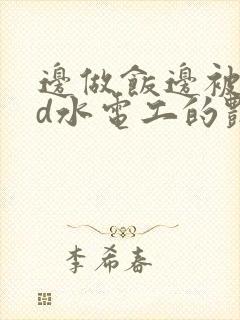 邊做飯邊被
d水電工的
李希春